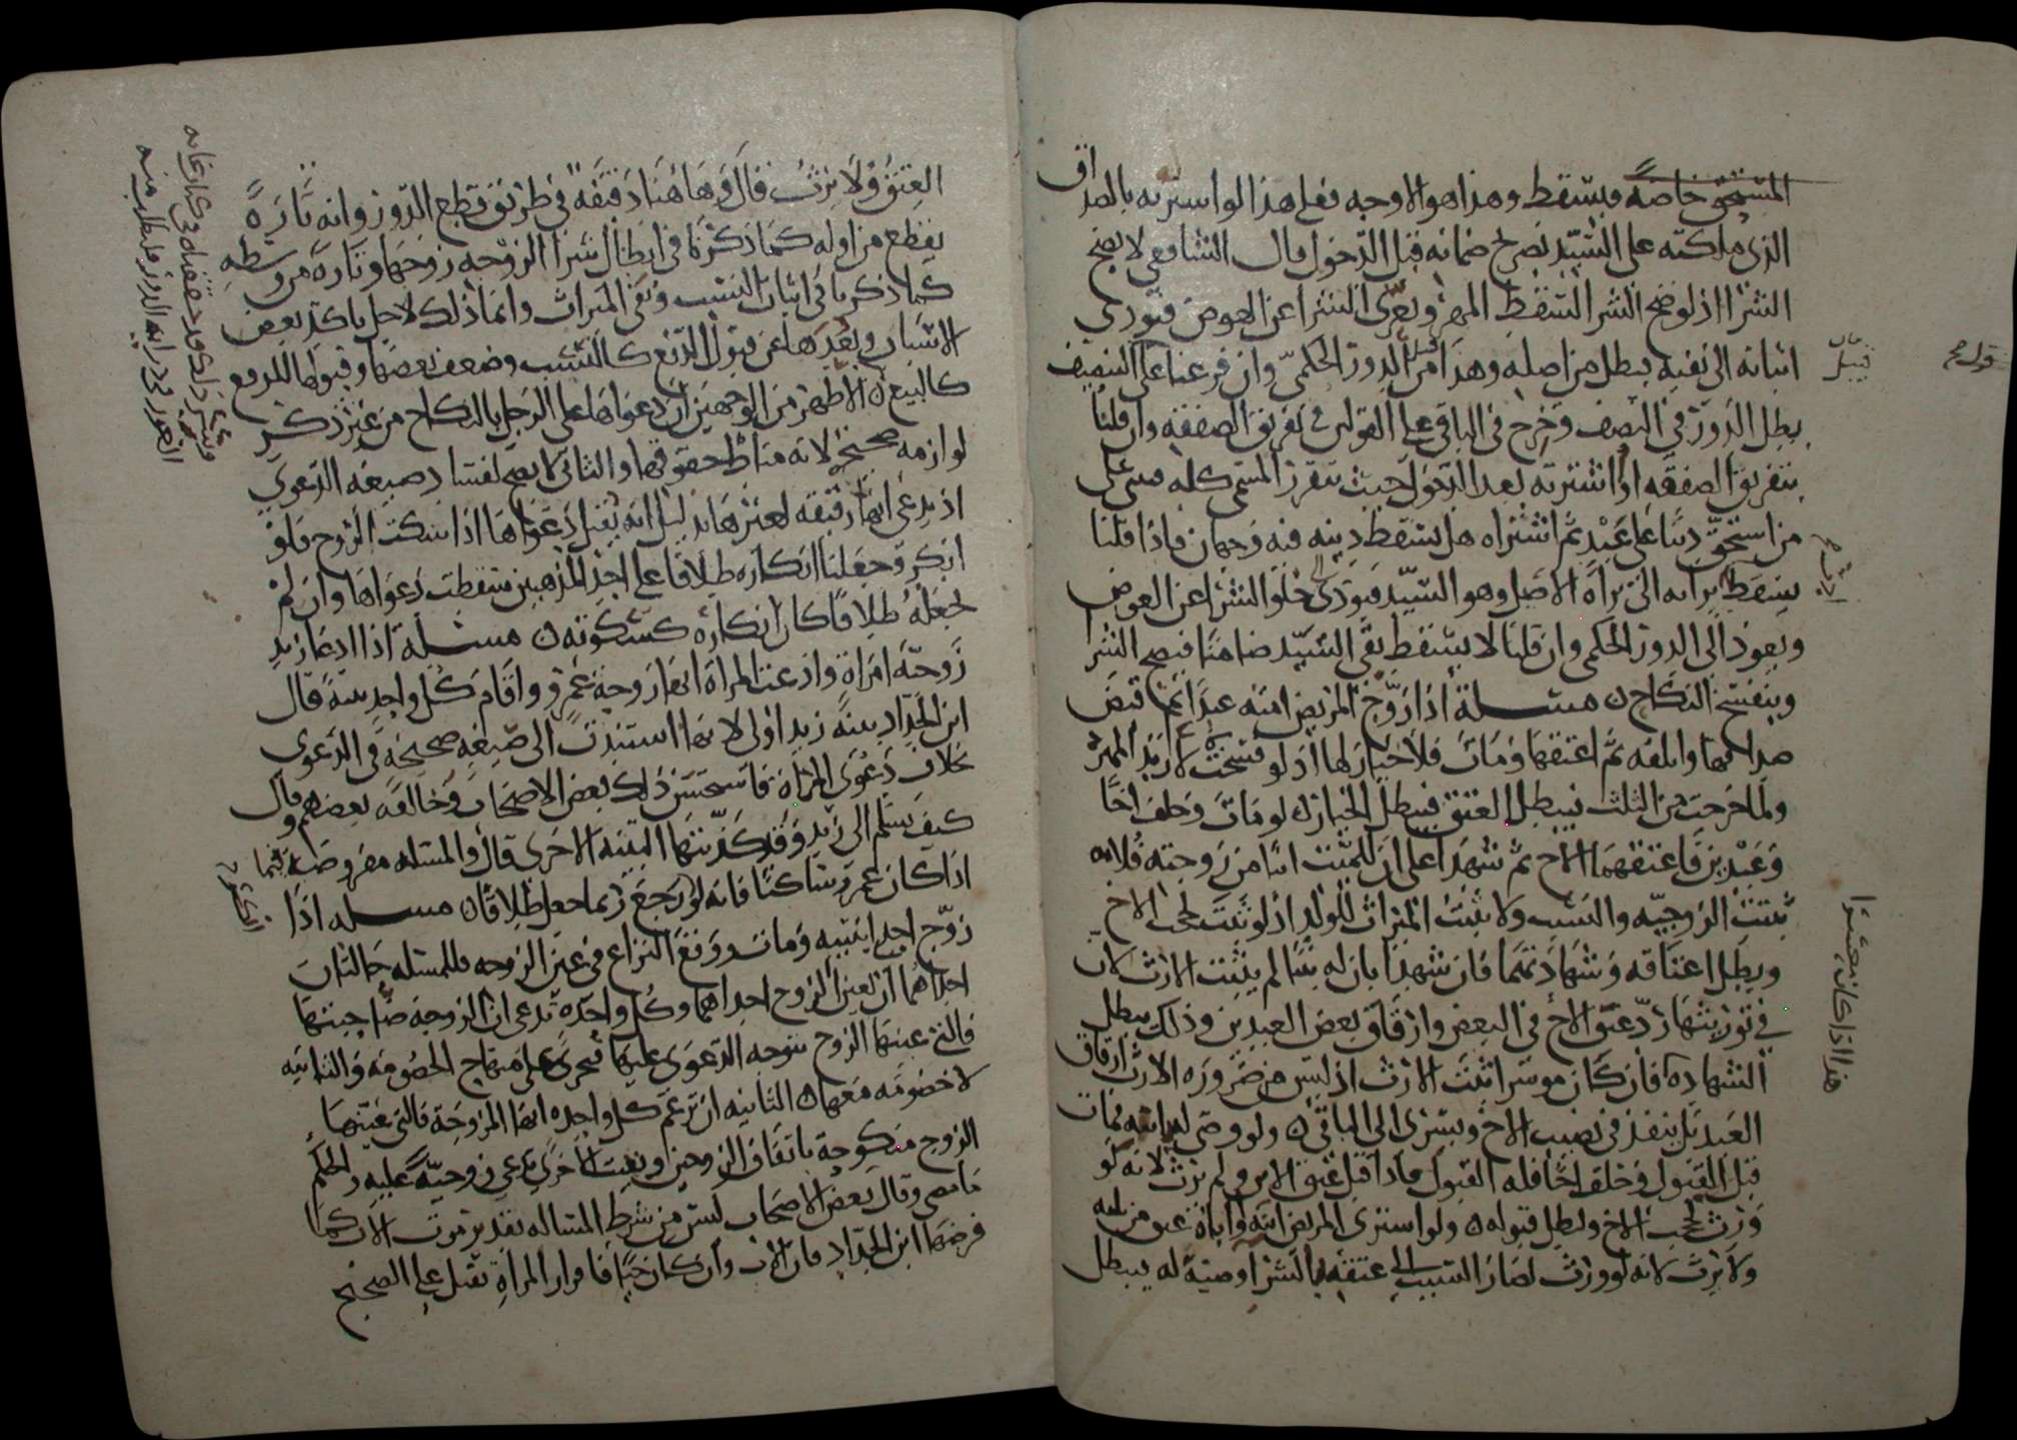 المستحق خاصة فيسقط وهذا هو الاوجه فعلى هذا لو اشترته بالصداق
الذى ملكته على السيد بصريح ضمانه قبل الدخول قال الشافعى لا يصح
الشرا اذ لو صح الشرا لسقط المهر وتعرى الشرا عن العوض فيودى
اثباته الى نفيه فبطل من اصله وهذا من قبيل الدور الحكمى وان فرعنا على التنصيف
بطل الدور فى النصف وخرج فى الباقى على القولين فى تفريق الصفقه وان قلنا
بتفريق الصفقه او اشترته بعد الدخول حيث تقرر المسمى كله فينبنى على
من استحق دينا على عبد ثم اشتراه هل يسقط دينه فيه وجهان فاذا قلنا
يسقط برأته الى براة الاصيل وهو السيد فيودى الى خلو الشرا عن العوض
ويعود الى الدور الحكمى وان قلنا لا يسقط بقى السيد ضامنا فيصح الشرا
وينفسخ النكاح مسئلة اذا زوج المريض امته عبدا ثم قبض
صداقها واتلفه ثم اعتقها ومات فلا خيار لها اذ لو فسخت لارتد المهر
ولما خرجت من الثلث فيبطل العتق فيبطل الخيار لو مات وخلف اخا
وعبدين فاعتقهما الاخ ثم شهدا على ان للميت ابنا من زوجته فلانه
ثبتت الزوجيه والنسب ولا يثبت الميراث للولد اذ لو ثبت لحجب الاخ
وبطل اعتاقه وشهادتهما فان شهدا بان له بنتا لم يثبت الارث لان
فى توريثها رد عتق الاخ فى البعض وارقاق بعض العبدين وذلك يبطل
الشهادة فان كان موسرا ثبت الارث اذ ليس من ضرورة الارث ارقاق
العبد بل ينفذ فى نصيب الاخ ويسرى الى الباقى ولو وصى له بابنه فمات
قبل القبول وخلف اخا فله القبول فاذا قبل عتق الابن ولم يرث لانه لو
ورث لحجب الاخ ولبطل قبوله ولو اشترى المريض ابنه او اباه عتق من ثلثه
ولا يرث لانه لو ورث لصار التسبب الى عتقه بالشرا وصية له فيبطل
قبيل
قوله
هذا اذا كان معسرا
العتق ولا يرث قال وهاهنا دقيقة فى طريق قطع الدور وانه تارة
يقطع من اوله كما ذكرنا فى ابطال شرا الزوجه زوجها وتارة من وسطه
كما ذكرنا فى اثبات النسب ونفى الميراث وانما ذلك لاجل تاكد بعض
الاسباب وبعدها عن قبول الدفع كالنسب وضعف بعضها وقبولها للدفع
كالبيع الاظهر من الوجهين ان دعواها على الرجل بالنكاح من غير ذكر
لوازمه صحيح لانه مناط حقوقها والثانى لا يصح لفساد صيغه الدعوى
اذ يدعى انها رقيقه لغيرها بدليل انه يقبل دعواها اذا سكت الزوج فلو
انكر وجعلنا انكاره طلاقا على احد المذهبين سقطت دعواها وان لم
نجعله طلاقا كان انكاره كسكوته مسئلة اذا ادعا زيد
زوجية امراة وادعت المراة انها زوجة عمرو واقام كل واحد بينة قال
ابن الحداد بينة زيد اولى لانها استندت الى صيغه صحيحة فى الدعوى
خلاف دعوى المراة فاستحسن ذلك بعض الاصحاب وخالفه بعضهم وقال
كيف يسلم الى زيد وقد كذبتها البينة الاخرى قال والمسئله مفروضة فيما
اذا كان عمرو ساكتا فانه لو رجع ربما جعل طلاقا مسئله اذا
زوج احد ابنتيه ومات ووقع النزاع فى عين الزوجه فللمسئله حالتان
احداهما ان يعين الزوج احداهما وكل واحدة تدعى ان الزوجة صاحبتها
فالتى عينها الزوج يتوجه الدعوى عليها فيجرى على منهاج الخصومة والثانيه
لا خصومه معها الثانيه ان تزعم كل واحده انها المزوجة فالتى عينها
الزوج منكوحة باتفاق الزوجين وبقيت الاخرى تدعى زوجية عليه والحكم
ما مضى وقال بعض الاصحاب ليس من شرط المساله تقدير موت الاب كما
فرضها ابن الحداد فان الاب وان كان حيا فاقرار المراة تقبل على الصحيح